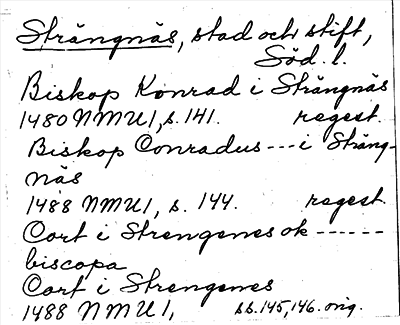 Strängnäs, stad och stift,
Söd. l.
Biskop Konrad i Strängnäs
1480 NMU1, s. 141. regest.
Biskop Conradus --- i Sträng-
näs
1488 NMU1, s. 144. regest.
Cort i Strengenes ok ------
biscopa
Cort i Strengenes
1488 NMU1, ss. 145, 146. orig.